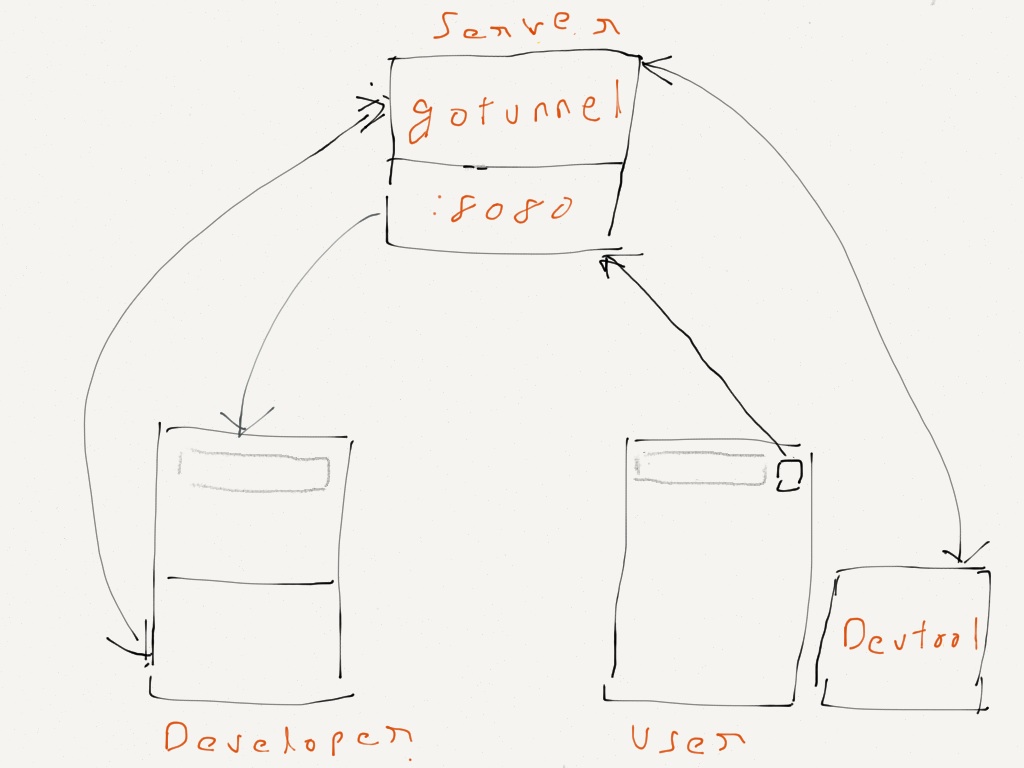 Server
gotunnel
:8080
Devtool
Developer
User